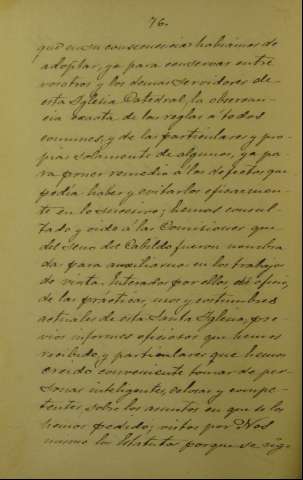 76.
que en su consecuencia habíamos de
adoptar, ya para conservar entre
vosotros y los demas servidores de
esta Iglesia Catedral, la observan-
cia exacta de las reglas a todos
comunes, y de las particulares y pro-
pias solamente de algunos, ya pa-
ra poner remedio á los defectos que
podía haber y evitarlos eficazmen-
te en lo sucesivo; hemos consul-
tado y oido á las Comisiones que
del Seno del Cabildo fueron nombra
das para auxiliarnos en los trabajos
de visita. Enterados por ellas de oficio,
de las prácticas, usos y costumbres
actuales de esta Santa Iglesia, pre-
vios informes oficiosos que hemos
recibido, y particulares que hemos
creido conveniente tomar de per-
sonas inteligentes, celosas y compe-
tentes, sobre los asuntos en que se los
hemos pedido; vistos por Nos
mismo los Estatutos porque se rige